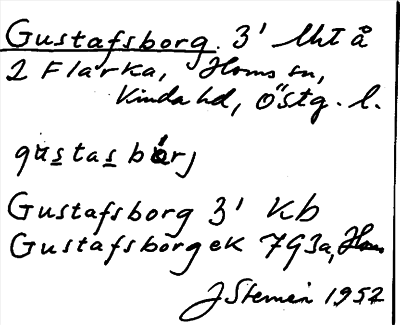 Gustafsborg. 3' lht å
2 Flarka, Horns sn,
Kinda hd, Östg. l.
gustas bårj
Gustafsborg 3' Kb
Gustafsborg ek 7G3a, Horn
J Stemein 1952